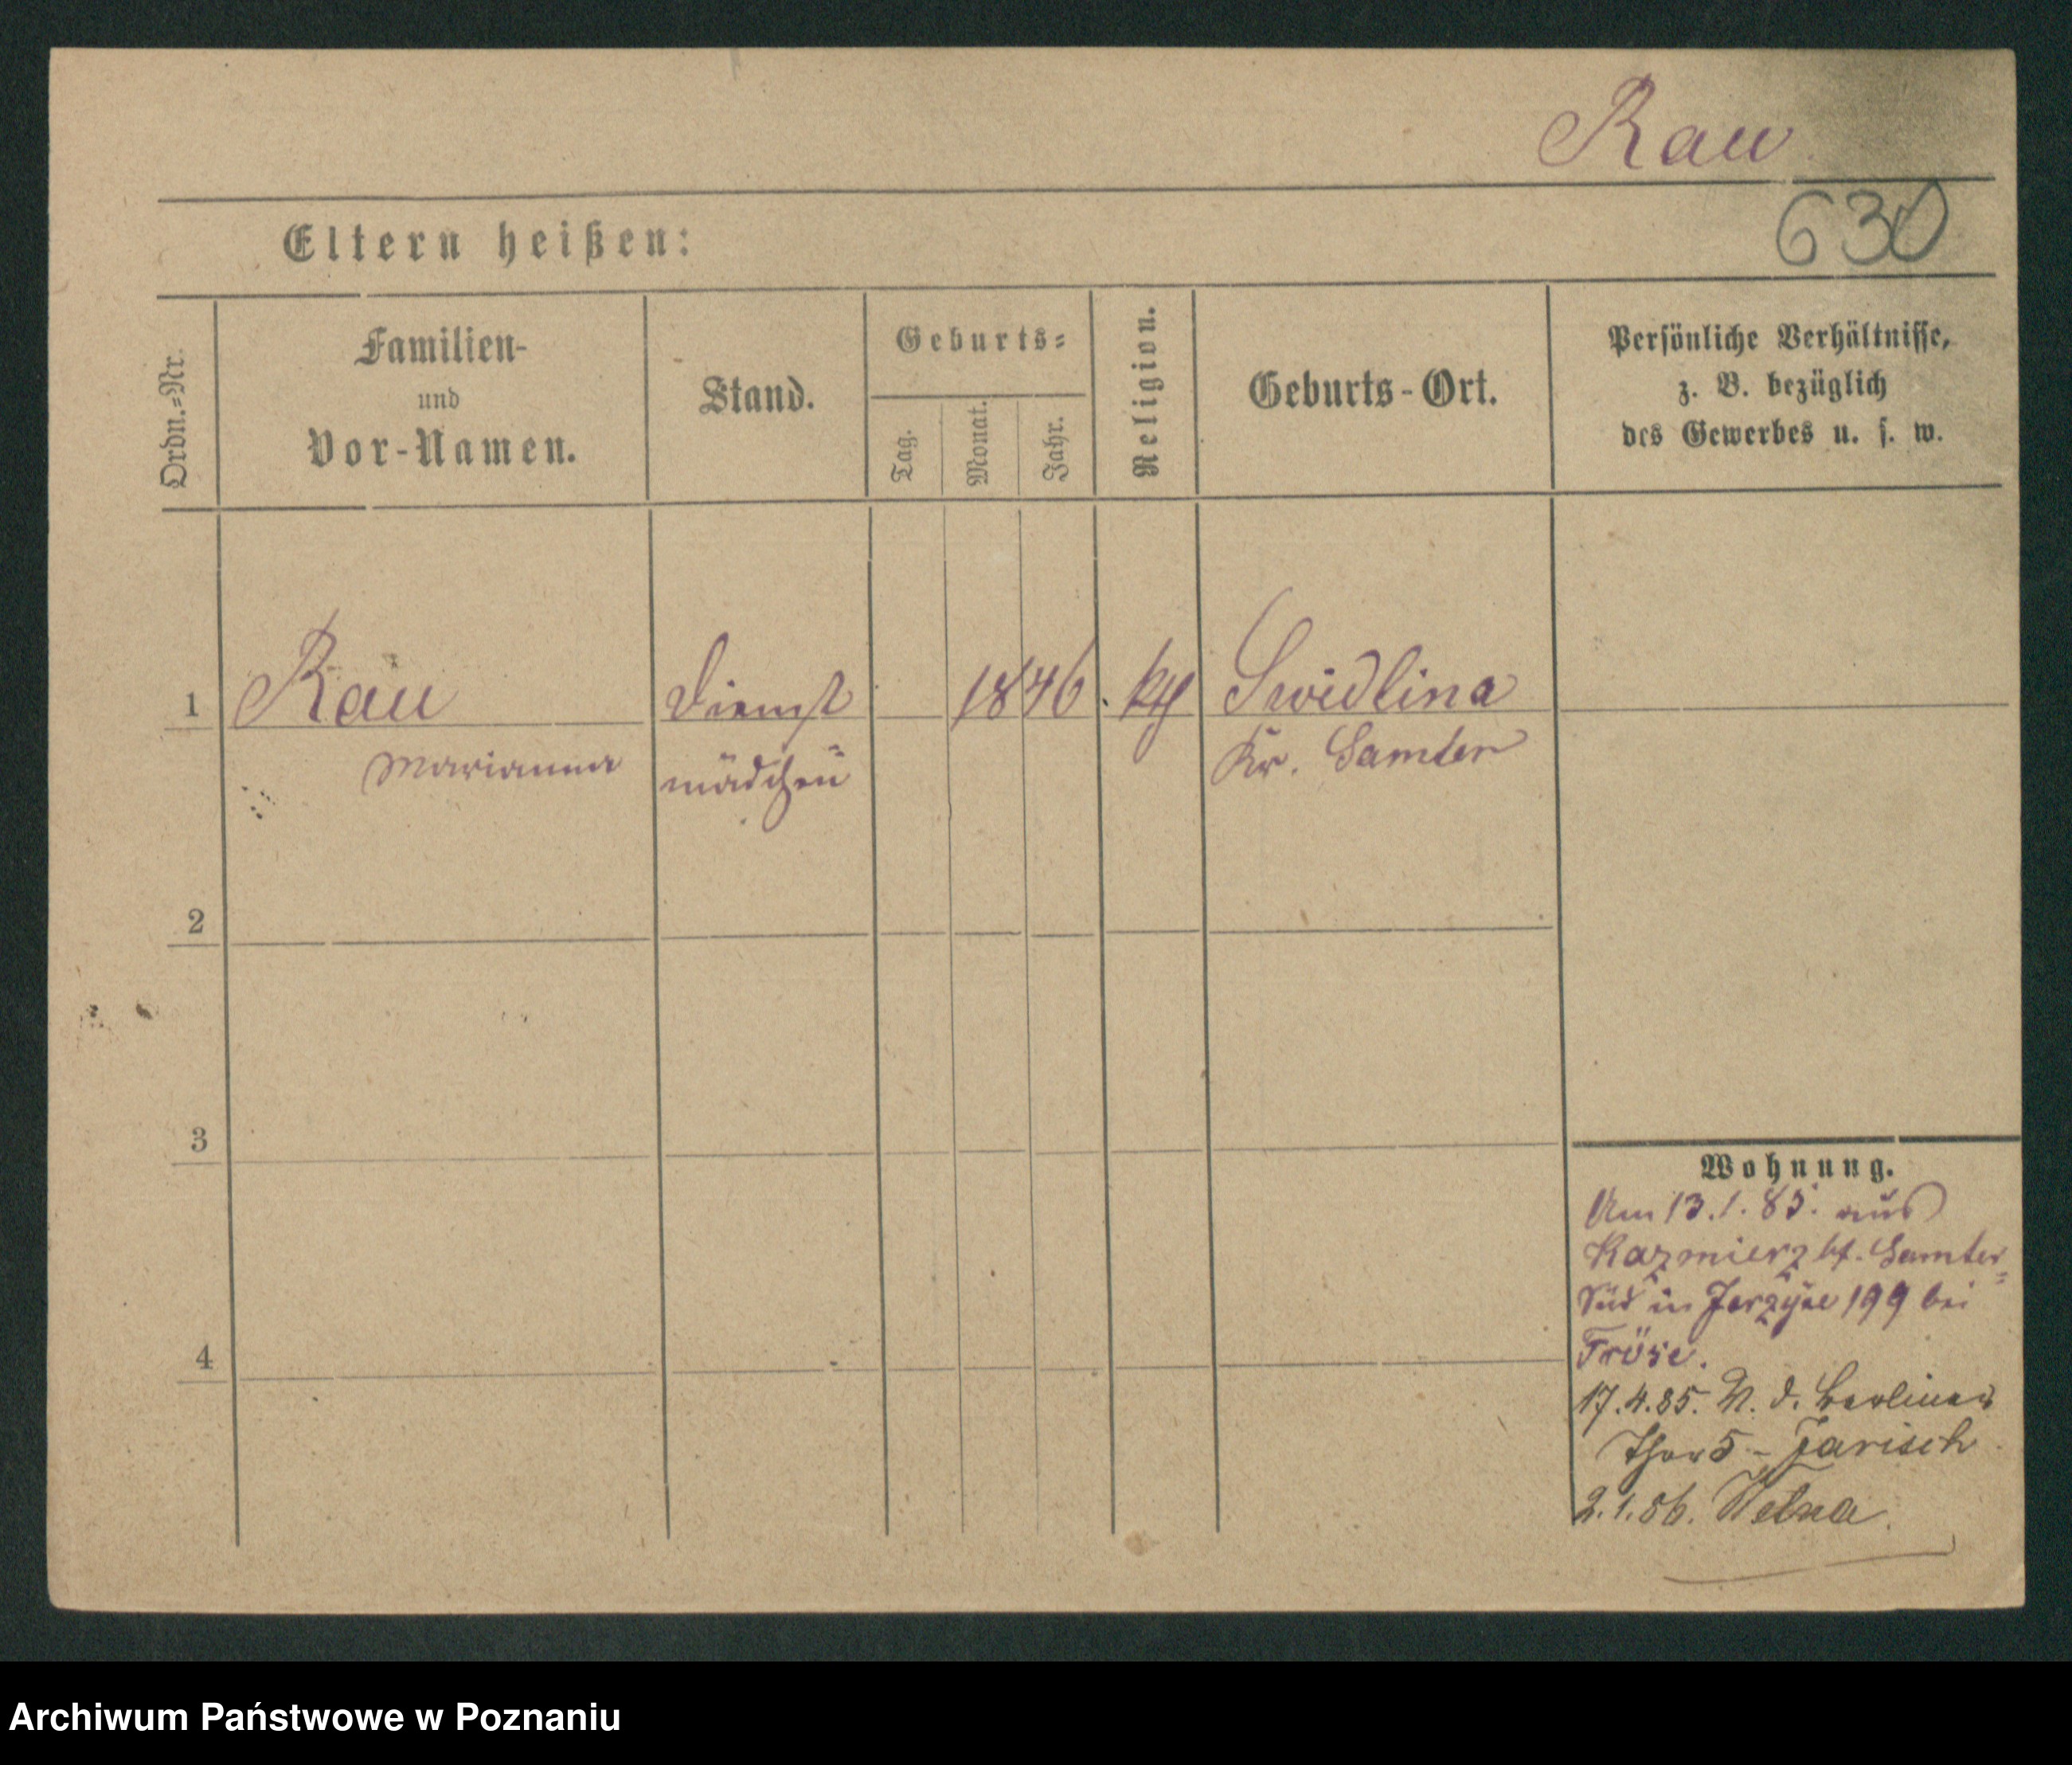 Rau
630
Eltern heißen:
Ordn.=Nr.
Familien-
und
Vor-Namen.
Stand.
Geburts=
Tag.
Monat.
Jahr.
Religion.
Geburts-Ort.
Persönliche Verhältnisse,
z. B. bezüglich
des Gewerbes u. s. w.
1
Rau
Marianna
Dienst=
mädchen
1846.
kth
Swidlina
Kr. Samter
2
3
4
Wohnung.
Am 13.1.85. aus
Kazmierz Kr. Samter=
Süd in Jerzyce 199 bei
Fröse.
17.4.85. N. d. Berliner
Thor 5 - Jarisch
2.1.86. Welna.
Archiwum Państwowe w Poznaniu